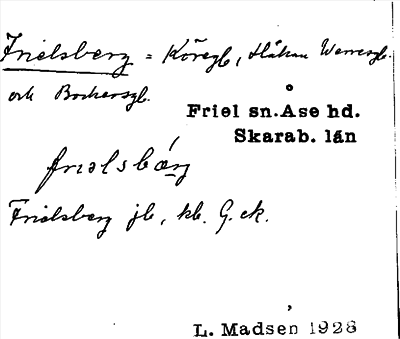 Frielsberg = Köregb, Håkan Werresgb.
och Bockersgb.
Friel sn. Åse hd.
Skarab. län
frıəlsbærɟ
Frielsberg jb, kb. G. ek.
L. Madsen 1928